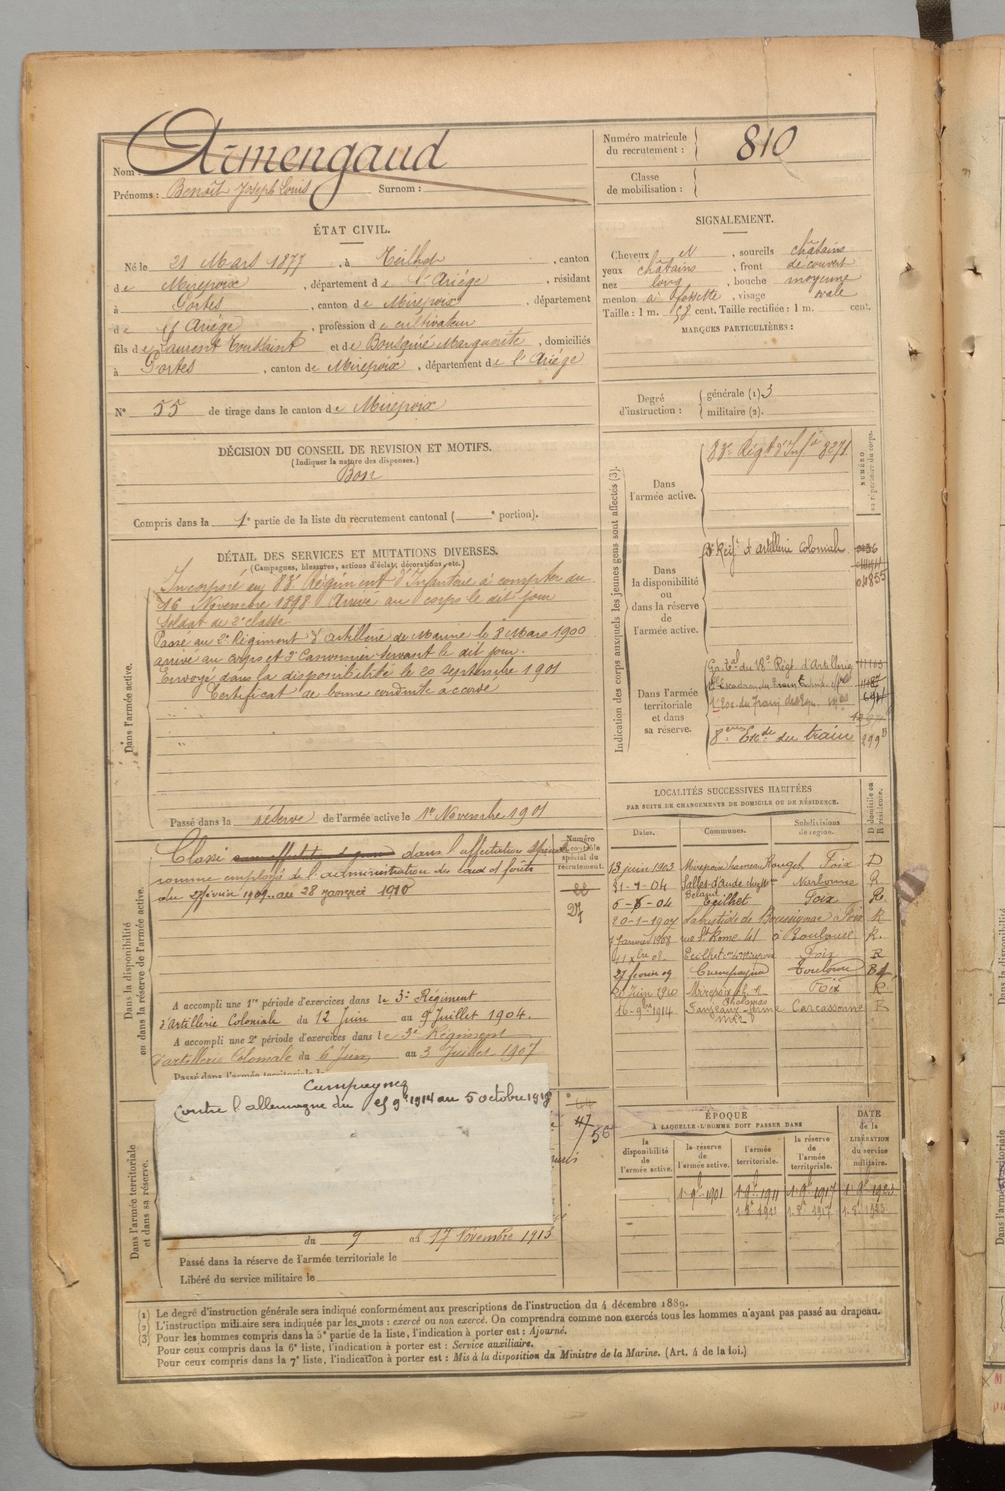 Nom : Armengaud
Prénoms : Benoît Joseph Louis Surnom :
Numéro matricule du recrutement : 810
Classe de mobilisation :
ÉTAT CIVIL.
Né le 21 Mars 1877, à Teilhet, canton
de Mirepoix, département de l'Ariège, résidant
à Portes, canton de Mirepoix, département
de l'Ariège, profession de cultivateur
fils de Laurent Toussaint et de Bousquié Marguerite, domiciliés
à Portes, canton de Mirepoix, département de l'Ariège
N° 55 de tirage dans le canton de Mirepoix
SIGNALEMENT.
Cheveux N, sourcils châtains
yeux châtains, front découvert
nez long, bouche moyenne
menton à fossette, visage ovale
Taille : 1 m. 58 cent. Taille rectifiée : 1 m. cent.
MARQUES PARTICULIÈRES :
Degré d'instruction : générale (1). 3
militaire (2).
DÉCISION DU CONSEIL DE REVISION ET MOTIFS.
(Indiquer la nature des dispenses.)
Bon
Compris dans la 1e partie de la liste du recrutement cantonal ( e portion).
DÉTAIL DES SERVICES ET MUTATIONS DIVERSES.
(Campagnes, blessures, actions d'éclat, décorations, etc.)
Dans l'armée active.
Incorporé au 83e Régiment d'Infanterie à compter du
16 Novembre 1898 Arrivé au corps le dit jour
Soldat de 2e classe
Passé au 2e Régiment d'artillerie de Marine le 8 Mars 1900
arrivé au corps et 2e Canonnier servant le dit jour.
Envoyé dans la disponibilité le 20 septembre 1901
Certificat de bonne conduite accordé
Passé dans la réserve de l'armée active le 1er Novembre 1901
Indication des corps auxquels les jeunes gens sont affectés (3).
NUMÉRO au répertoire du corps.
Dans l'armée active.
83e Régt d'Infie 8271
Dans la disponibilité ou dans la réserve de l'armée active.
Régt d'artillerie Coloniale
04855
Dans l'armée territoriale et dans sa réserve.
Gr. Tal du 18e Régt d'Artillerie 11103
8eme Esc de du train
LOCALITÉS SUCCESSIVES HABITÉES
PAR SUITE DE CHANGEMENTS DE DOMICILE OU DE RÉSIDENCE.
Dates. Communes. Subdivisions de région. D domicile ou R résidence.
13 juin 1903 Mirepoix hameau Rouget Foix D
31-1-04 Salles d'Aude Narbonne R
Teilhet Foix R
20-1-1907 Labastide de Bousignac Foix R
7 Janvier 1908 rue St Rome 41 à Toulouse R.
11 xbre 08 Teilhet Foix R
27 février 09 Campagna
Juin 1910 Mirepoix Foix R
16-9bre 1914 Carcassonne R
Dans la disponibilité ou dans la réserve de l'armée active.
Numéro au contrôle spécial du recrutement.
27
Classé dans l'affectation spéciale
comme employé de l'administration des Eaux et forêts
du 27 février 1909 au 28 janvier 1910
A accompli une 1re période d'exercices dans le 3e Régiment
d'Artillerie Coloniale du 12 Juin au 9 Juillet 1904.
A accompli une 2e période d'exercices dans le 3e Régiment
d'artillerie Coloniale du 6 Juin au 3 Juillet 1907
Passé dans l'armée territoriale le
Dans l'armée territoriale et dans sa réserve.
Campagnes
Contre l'allemagne du 9bre 1914 au 5 octobre 1918
du 9 au 17 Novembre 1913
Passé dans la réserve de l'armée territoriale le
Libéré du service militaire le
ÉPOQUE
À LAQUELLE L'HOMME DOIT PASSER DANS
la disponibilité de l'armée active. la réserve de l'armée active. l'armée territoriale. la réserve de l'armée territoriale.
DATE de la LIBÉRATION du service militaire.
1. 9b 1901 1. 9b 1911 1. 9b 1917 1. 9b 1923
(1) Le degré d'instruction générale sera indiqué conformément aux prescriptions de l'instruction du 4 décembre 1889.
(2) L'instruction militaire sera indiquée par les mots : exercé ou non exercé. On comprendra comme non exercés tous les hommes n'ayant pas passé au drapeau.
(3) Pour les hommes compris dans la 5e partie de la liste, l'indication à porter est : Ajourné.
Pour ceux compris dans la 6e liste, l'indication à porter est : Service auxiliaire.
Pour ceux compris dans la 7e liste, l'indication à porter est : Mis à la disposition du Ministre de la Marine. (Art. 4 de la loi.)